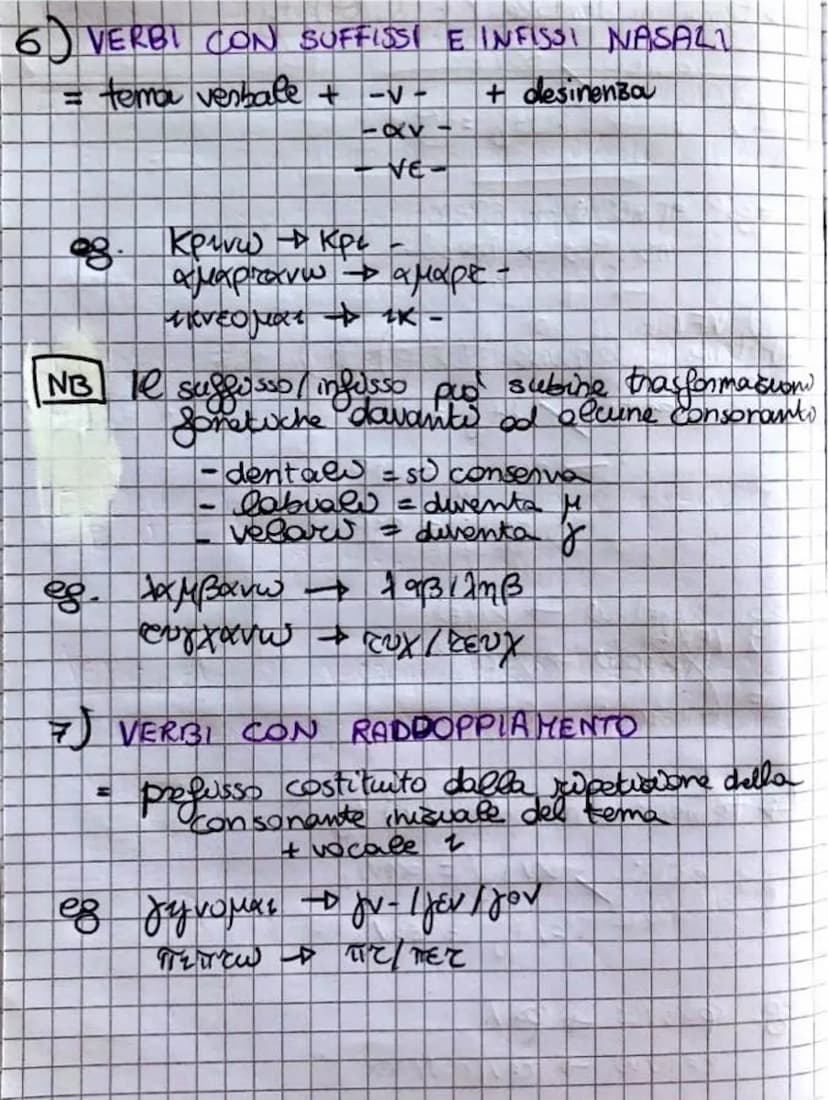 6) VERBI CON SUFFISSI E INFISSI NASALI
= tema verbale + -ν- + desinenza
-αν-
-νε-
eg. κρινω → κρι -
αμαρτανω → αμαρτ -
ικνεομαι → ικ -
NB Il suffisso/infisso può subire trasformazioni
fonetiche davanti ad alcune consonanti
- dentali = si conserva
- labiali = diventa μ
- velari = diventa γ
eg. λαμβανω → λαβ/ληβ
τυγχανω → τυχ/τευχ
7) VERBI CON RADDOPPIAMENTO
= prefisso costituito dalla ripetizione della
consonante iniziale del tema
+ vocale ι
eg γιγνομαι → γν-/γεν/γον
πιπτω → πτ/πετ